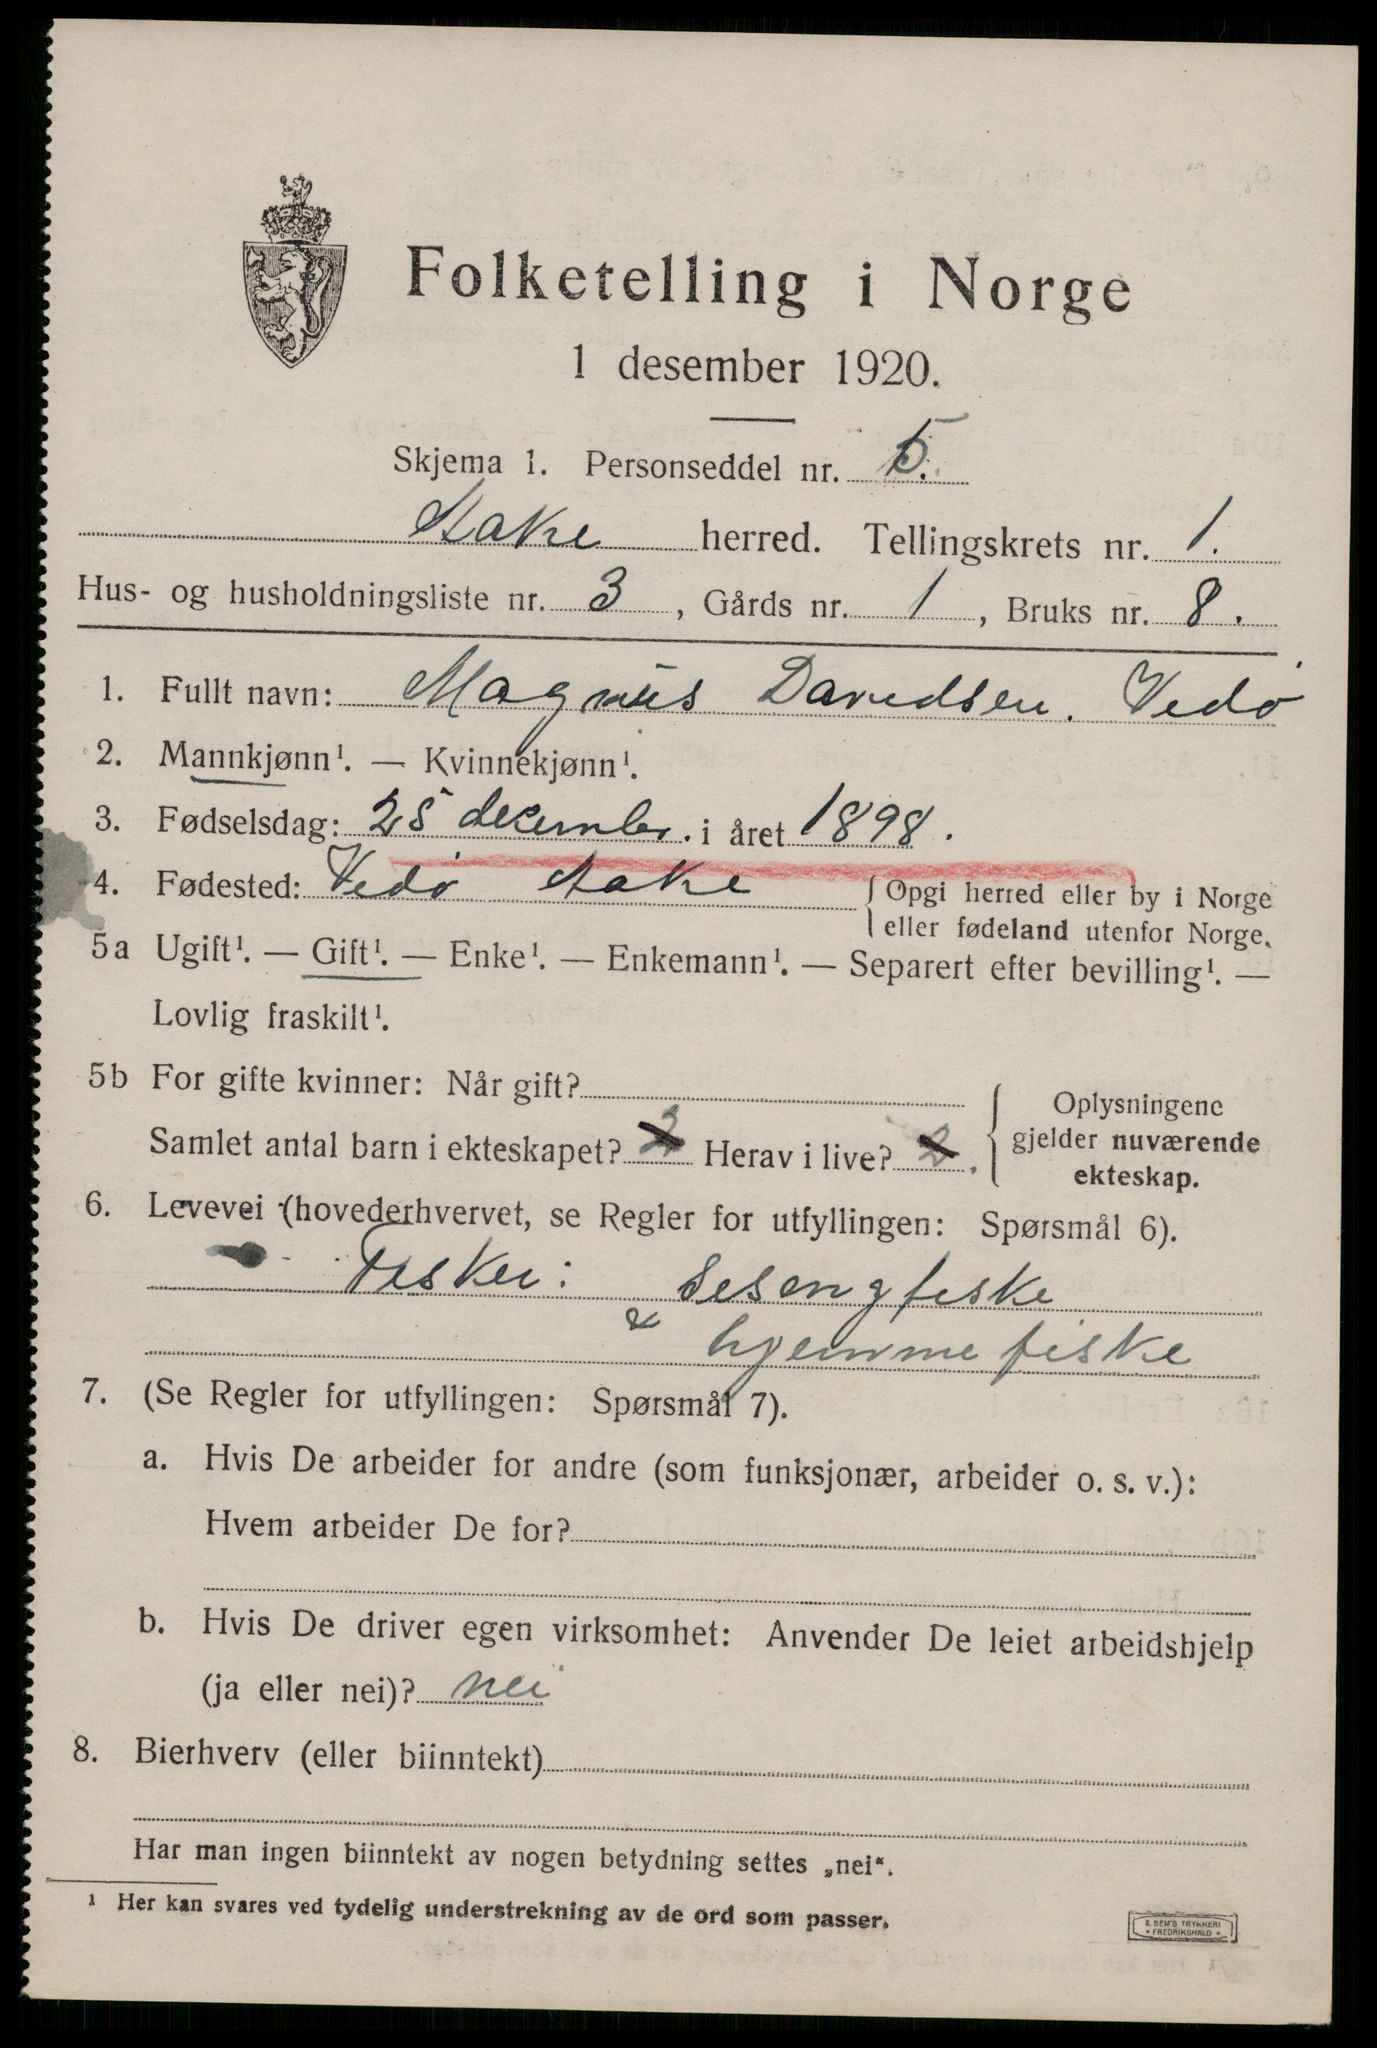 Folketelling i Norge
1 desember 1920.
Skjema 1. Personseddel nr. 5.
Aake herred. Tellingskrets nr. 1.
Hus- og husholdningsliste nr. 3, Gårds nr. 1, Bruks nr. 8.
1. Fullt navn: Magnus Davidsen. Vedø
2. Mannkjønn¹. — Kvinnekjønn¹.
3. Fødselsdag: 25 december. i året 1898.
4. Fødested: Vedø Aake { Opgi herred eller by i Norge
eller fødeland utenfor Norge.
5a Ugift¹. — Gift¹. — Enke¹. — Enkemann¹. — Separert efter bevilling¹. —
Lovlig fraskilt¹.
5b For gifte kvinner: Når gift?
Samlet antal barn i ekteskapet? 2 Herav i live? 2.
Oplysningene
gjelder nuværende
ekteskap.
6. Levevei (hovederhvervet, se Regler for utfyllingen: Spørsmål 6).
Fisker: Sesongfiske
& hjemmefiske
7. (Se Regler for utfyllingen: Spørsmål 7).
a. Hvis De arbeider for andre (som funksjonær, arbeider o. s. v.):
Hvem arbeider De for?
b. Hvis De driver egen virksomhet: Anvender De leiet arbeidshjelp
(ja eller nei)? nei
8. Bierhverv (eller biinntekt)
Har man ingen biinntekt av nogen betydning settes „nei“.
¹ Her kan svares ved tydelig understrekning av de ord som passer.
E. SEM'S TRYKKERI
* FREDRIKSHALD *